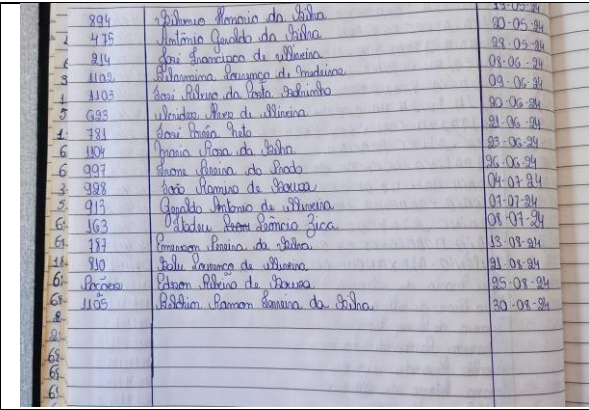 894 Honorio da Silva 15-05-24
475 Antônio Geraldo da Silva 20-05-24
214 José Francisco de Oliveira 28-05-24
1102 Lourenço de Medeiros 08-06-24
1103 José Ribeiro da Costa Sobrinho 09-06-24
693 Alves de Oliveira 20-06-24
781 José Corrêa Neto 21-06-24
1104 Maria Rosa da Silva 23-06-24
997 Irone Pereira do Prado 26-06-24
928 João Ramiro de Souza 04-07-24
913 Geraldo Antonio de Oliveira 07-07-24
163 Leôncio Zica 08-07-24
787 Emerson Pereira da Silva 13-08-24
810 Lourenço de Oliveira 21-08-24
Edson Ribeiro de Souza 25-08-24
1105 Ramon Ferreira da Silva 30-08-24